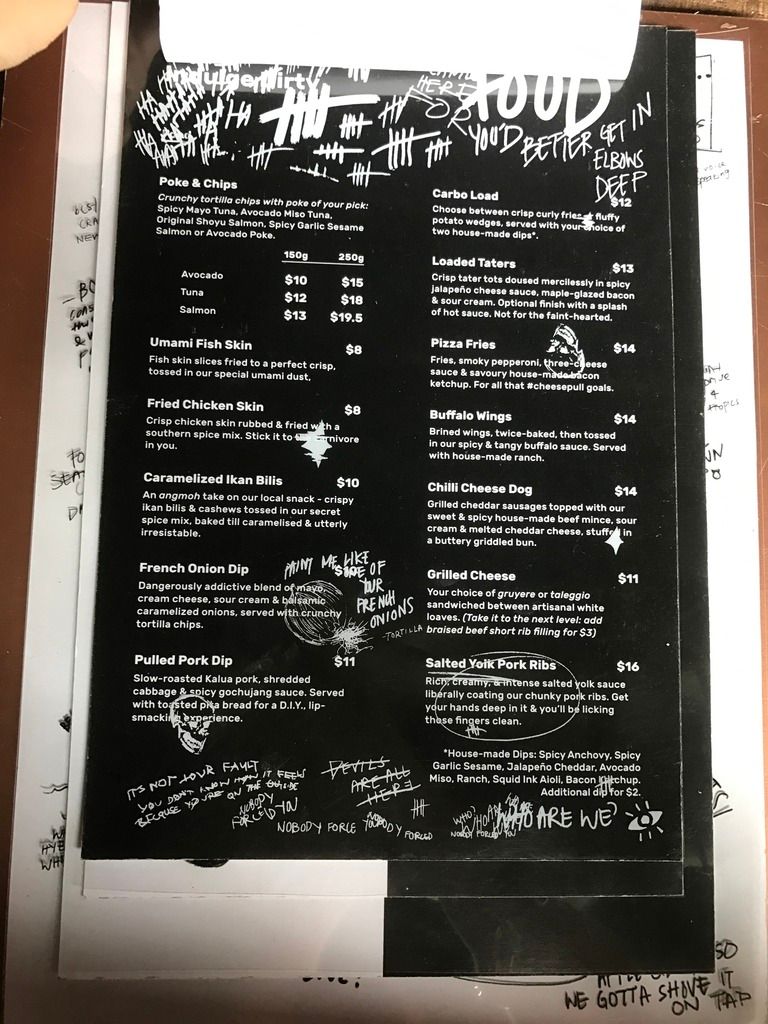 Indulge Dirty
FOOD
HERE
FOR
YOU'D
BETTER
GET IN
ELBOWS
DEEP
Poke & Chips
Crunchy tortilla chips with poke of your pick:
Spicy Mayo Tuna, Avocado Miso Tuna,
Original Shoyu Salmon, Spicy Garlic Sesame
Salmon or Avocado Poke.
150g 250g
Avocado $10 $15
Tuna $12 $18
Salmon $13 $19.5
Umami Fish Skin $8
Fish skin slices fried to a perfect crisp,
tossed in our special umami dust,
Fried Chicken Skin $8
Crisp chicken skin rubbed & fried with a
southern spice mix. Stick it to the carnivore
in you.
Caramelized Ikan Bilis $10
An angmoh take on our local snack - crispy
ikan bilis & cashews tossed in our secret
spice mix, baked till caramelised & utterly
irresistable.
French Onion Dip
Dangerously addictive blend of mayo,
cream cheese, sour cream & balsamic
caramelized onions, served with crunchy
tortilla chips.
PAINT ME LIKE
ONE OF
YOUR
FRENCH
ONIONS
-TORTILLA
Pulled Pork Dip $11
Slow-roasted Kalua pork, shredded
cabbage & spicy gochujang sauce. Served
with toasted pita bread for a D.I.Y., lip-
smacking experience.
Carbo Load $12
Choose between crisp curly fries or fluffy
potato wedges, served with your choice of
two house-made dips*.
Loaded Taters $13
Crisp tater tots doused mercilessly in spicy
jalapeño cheese sauce, maple-glazed bacon
& sour cream. Optional finish with a splash
of hot sauce. Not for the faint-hearted.
Pizza Fries $14
Fries, smoky pepperoni, three-cheese
sauce & savoury house-made bacon
ketchup. For all that #cheesepull goals.
Buffalo Wings $14
Brined wings, twice-baked, then tossed
in our spicy & tangy buffalo sauce. Served
with house-made ranch.
Chilli Cheese Dog $14
Grilled cheddar sausages topped with our
sweet & spicy house-made beef mince, sour
cream & melted cheddar cheese, stuffed in
a buttery griddled bun.
Grilled Cheese $11
Your choice of gruyere or taleggio
sandwiched between artisanal white
loaves. (Take it to the next level: add
braised beef short rib filling for $3)
Salted Yolk Pork Ribs $16
Rich, creamy, & intense salted yolk sauce
liberally coating our chunky pork ribs. Get
your hands deep in it & you'll be licking
those fingers clean.
*House-made Dips: Spicy Anchovy, Spicy
Garlic Sesame, Jalapeño Cheddar, Avocado
Miso, Ranch, Squid Ink Aioli, Bacon Ketchup.
Additional dip for $2.
IT'S NOT YOUR FAULT
YOU DON'T KNOW HOW IT FEELS
BECAUSE YOU'RE ON THE OUTSIDE
NOBODY
FORCED YOU
DEVILS
ARE ALL
HERE
NOBODY FORCE
NOBODY FORCED
WHO ARE WE?
WE GOTTA SHOVE IT
ON TAP